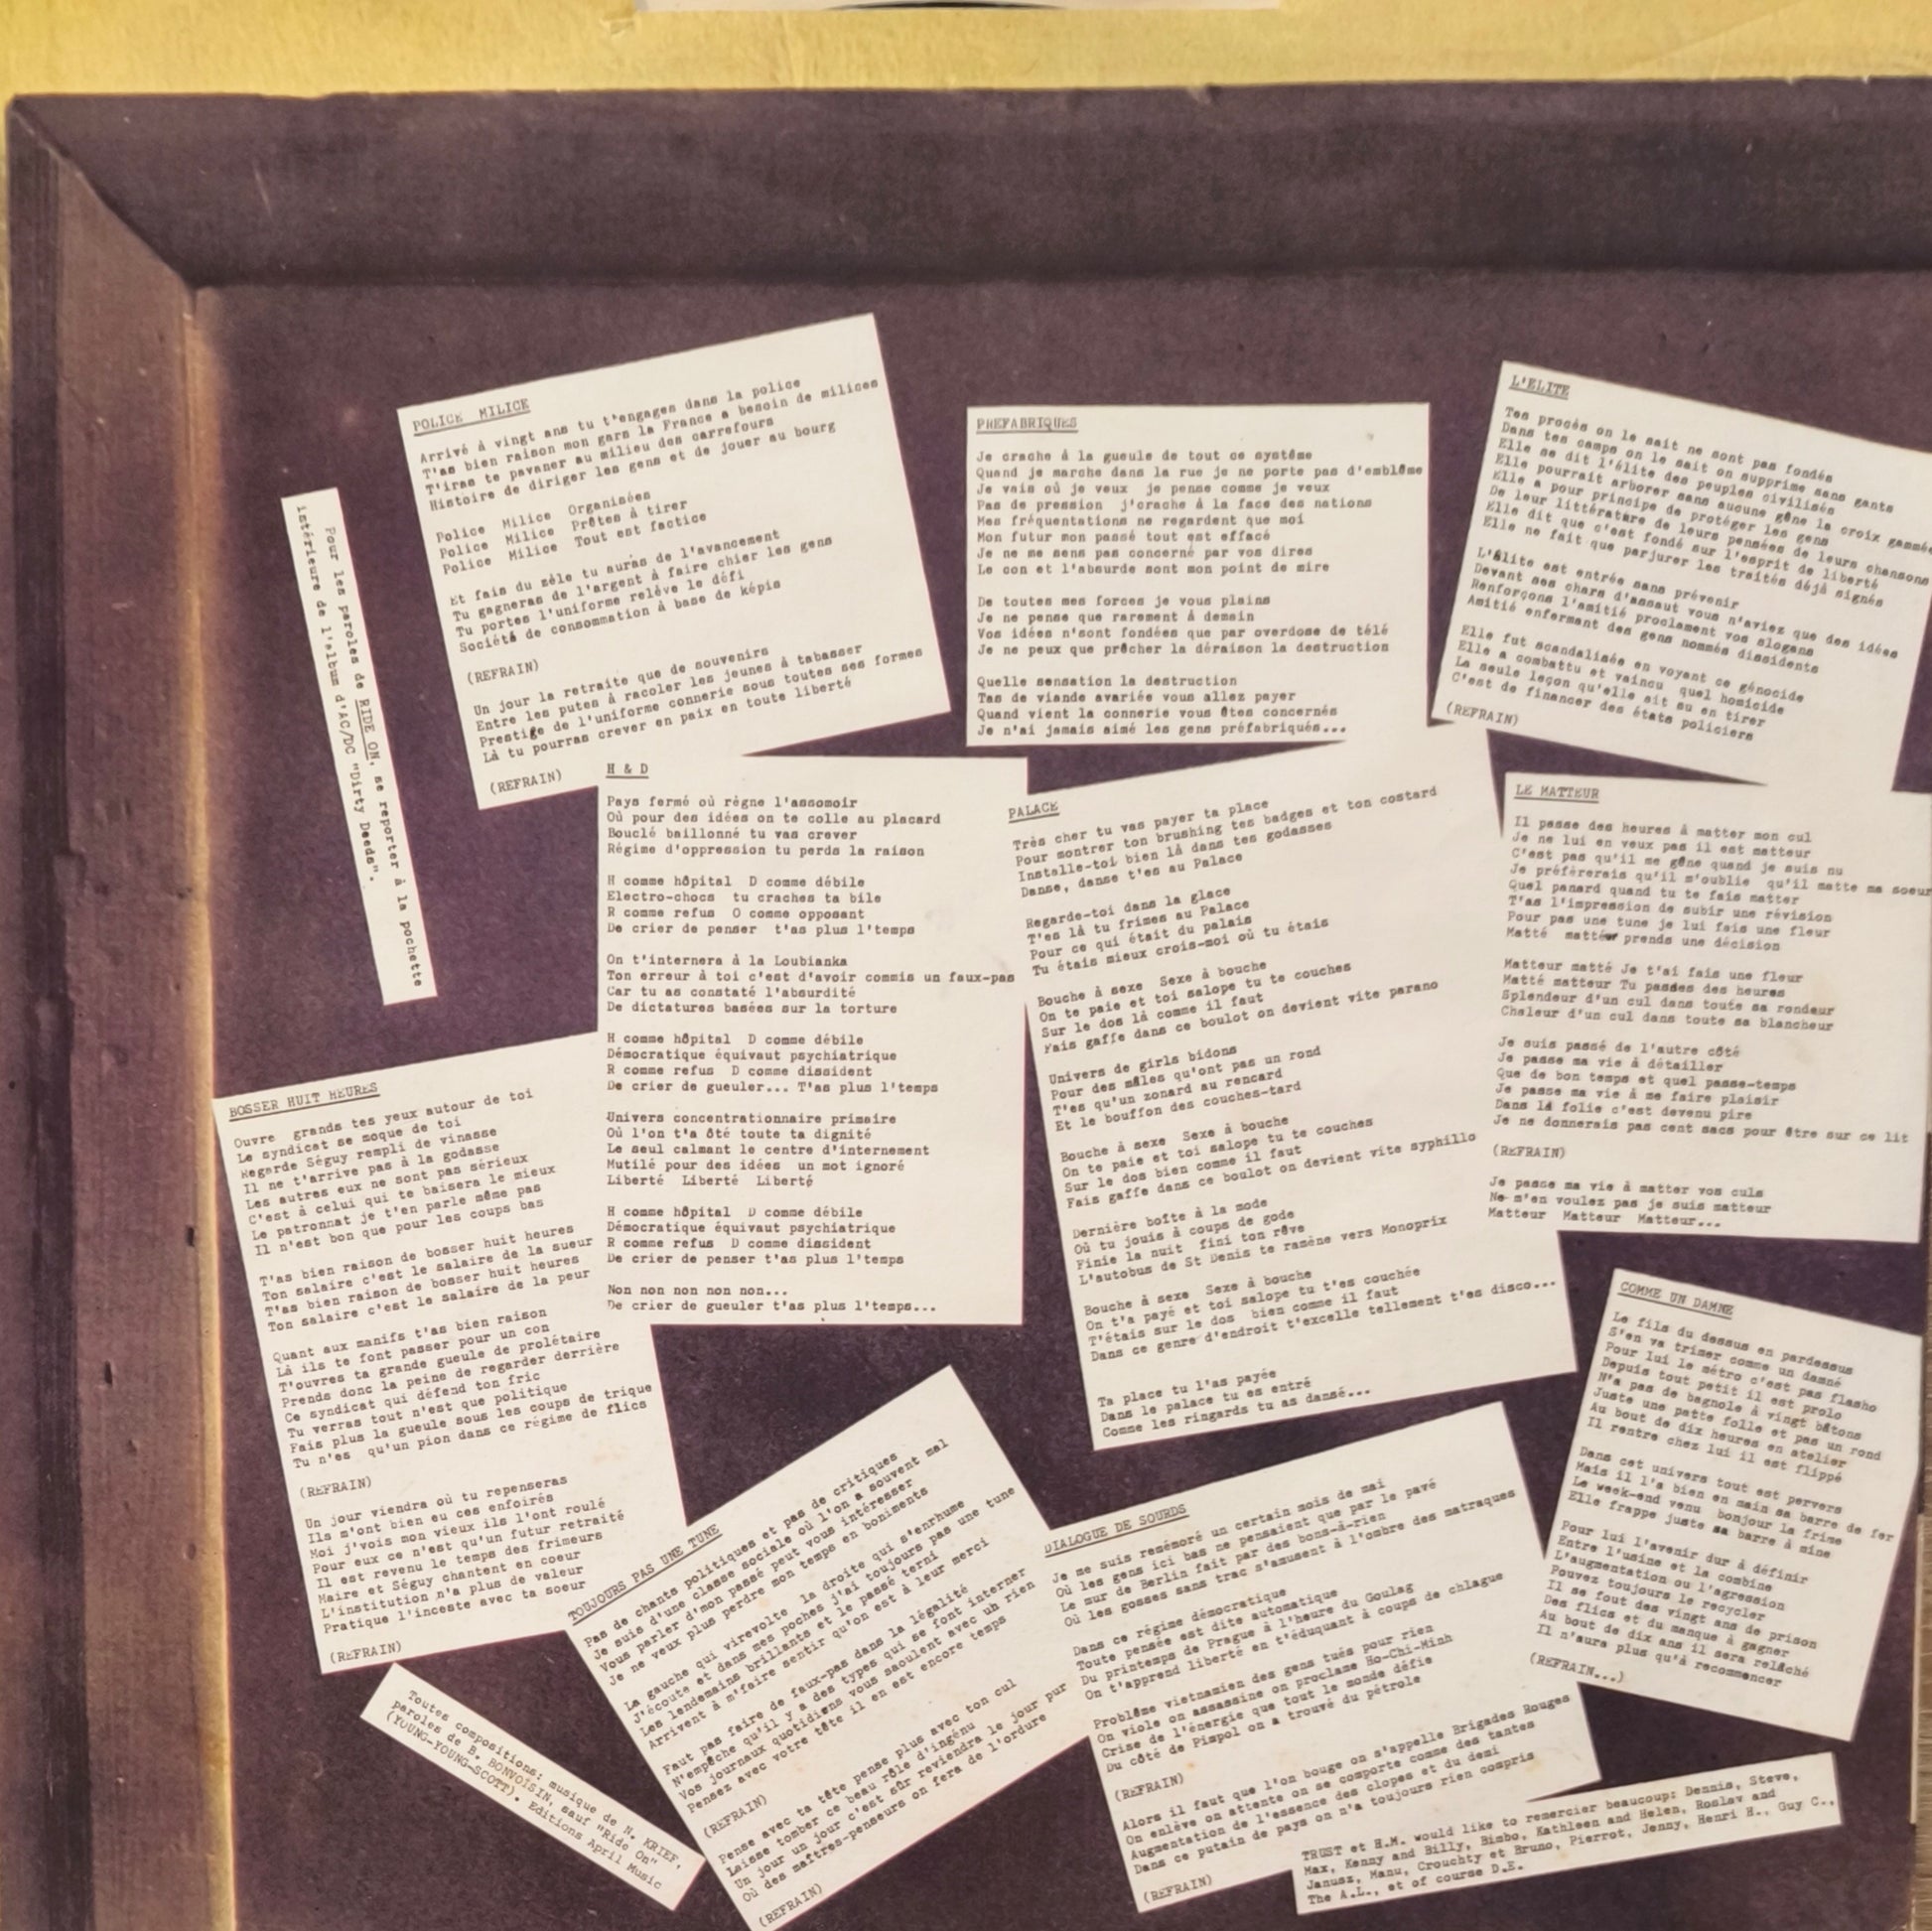 POLICE MILICE
Arrivé à vingt ans tu t'engages dans la police
T'as bien raison mon gars la France a besoin de milices
T'iras te pavaner au milieu des carrefours
Histoire de diriger les gens et de jouer au bourg
Police Milice Organisées
Police Milice Prêtes à tirer
Police Milice Tout est factice
Et fais du zèle tu auras de l'avancement
Tu gagneras de l'argent à faire chier les gens
Tu portes l'uniforme relève le défi
Société de consommation à base de képis
(REFRAIN)
Un jour la retraite que de souvenirs
Entre les putes à racoler les jeunes à tabasser
Prestige de l'uniforme connerie sous toutes ses formes
Là tu pourras crever en paix en toute liberté
(REFRAIN)
PREFABRIQUES
Je crache à la gueule de tout ce système
Quand je marche dans la rue je ne porte pas d'emblème
Je vais où je veux je pense comme je veux
Pas de pression j'crache à la face des nations
Mes fréquentations ne regardent que moi
Mon futur mon passé tout est effacé
Je ne me sens pas concerné par vos dires
Le con et l'absurde sont mon point de mire
De toutes mes forces je vous plains
Je ne pense que rarement à demain
Vos idées n'sont fondées que par overdose de télé
Je ne peux que prêcher la déraison la destruction
Quelle sensation la destruction
Tas de viande avariée vous allez payer
Quand vient la connerie vous êtes concernés
Je n'ai jamais aimé les gens préfabriqués...
L'ELITE
Tes procès on le sait ne sont pas fondés
Dans tes camps on le sait on supprime sans gants
Elle se dit l'élite des peuples civilisés
Elle pourrait arborer sans aucune gêne la croix gammée
Elle a pour principe de protéger les gens
De leur littérature de leurs pensées de leurs chansons
Elle dit que c'est fondé sur l'esprit de liberté
Elle ne fait que parjurer les traités déjà signés
L'élite est entrée sans prévenir
Devant ses chars d'assaut vous n'aviez que des idées
Renforçons l'amitié proclament vos slogans
Amitié enfermant des gens nommés dissidents
Elle fut scandalisée en voyant ce génocide
Elle a combattu et vaincu quel homicide
La seule leçon qu'elle ait su en tirer
C'est de financer des états policiers
(REFRAIN)
Pour les paroles de RIDE ON, se reporter à la pochette
intérieure de l'album d'AC/DC "Dirty Deeds".
H & D
Pays fermé où règne l'assomoir
Où pour des idées on te colle au placard
Bouclé baillonné tu vas crever
Régime d'oppression tu perds la raison
H comme hôpital D comme débile
Electro-chocs tu craches ta bile
R comme refus O comme opposant
De crier de penser t'as plus l'temps
On t'internera à la Loubianka
Ton erreur à toi c'est d'avoir commis un faux-pas
Car tu as constaté l'absurdité
De dictatures basées sur la torture
H comme hôpital D comme débile
Démocratique équivaut psychiatrique
R comme refus D comme dissident
De crier de gueuler... T'as plus l'temps
Univers concentrationnaire primaire
Où l'on t'a ôté toute ta dignité
Le seul calmant le centre d'internement
Mutilé pour des idées un mot ignoré
Liberté Liberté Liberté
H comme hôpital D comme débile
Démocratique équivaut psychiatrique
R comme refus D comme dissident
De crier de penser t'as plus l'temps
Non non non non non...
De crier de gueuler t'as plus l'temps...
PALACE
Très cher tu vas payer ta place
Pour montrer ton brushing tes badges et ton costard
Installe-toi bien là dans tes godasses
Danse, danse t'es au Palace
Regarde-toi dans la glace
T'es là tu frimes au Palace
Pour ce qui était du palais
Tu étais mieux crois-moi où tu étais
Bouche à sexe Sexe à bouche
On te paie et toi salope tu te couches
Sur le dos là comme il faut
Fais gaffe dans ce boulot on devient vite parano
Univers de girls bidons
Pour des mâles qu'ont pas un rond
T'es qu'un zonard au rencard
Et le bouffon des couches-tard
Bouche à sexe Sexe à bouche
On te paie et toi salope tu te couches
Sur le dos bien comme il faut
Fais gaffe dans ce boulot on devient vite syphillo
Dernière boîte à la mode
Où tu jouis à coups de gode
Finie la nuit fini ton rêve
L'autobus de St Denis te ramène vers Monoprix
Bouche à sexe Sexe à bouche
On t'a payé et toi salope tu t'es couchée
T'étais sur le dos bien comme il faut
Dans ce genre d'endroit t'excelle tellement t'es disco...
Ta place tu l'as payée
Dans le palace tu es entré
Comme les ringards tu as dansé...
LE MATTEUR
Il passe des heures à matter mon cul
Je ne lui en veux pas il est matteur
C'est pas qu'il me gêne quand je suis nu
Je préfèrerais qu'il m'oublie qu'il matte ma soeur
Quel panard quand tu te fais matter
T'as l'impression de subir une révision
Pour pas une tune je lui fais une fleur
Matté matteur prends une décision
Matteur matté Je t'ai fais une fleur
Matté matteur Tu passes des heures
Splendeur d'un cul dans toute sa rondeur
Chaleur d'un cul dans toute sa blancheur
Je suis passé de l'autre côté
Je passe ma vie à détailler
Que de bon temps et quel passe-temps
Je passe ma vie à me faire plaisir
Dans la folie c'est devenu pire
Je ne donnerais pas cent sacs pour être sur ce lit
(REFRAIN)
Je passe ma vie à matter vos culs
Ne m'en voulez pas je suis matteur
Matteur Matteur Matteur...
BOSSER HUIT HEURES
Ouvre grands tes yeux autour de toi
Le syndicat se moque de toi
Regarde Séguy rempli de vinasse
Il ne t'arrive pas à la godasse
Les autres eux ne sont pas sérieux
C'est à celui qui te baisera le mieux
Le patronnat je t'en parle même pas
Il n'est bon que pour les coups bas
T'as bien raison de bosser huit heures
Ton salaire c'est le salaire de la sueur
T'as bien raison de bosser huit heures
Ton salaire c'est le salaire de la peur
Quant aux manifs t'as bien raison
Là ils te font passer pour un con
T'ouvres ta grande gueule de prolétaire
Prends donc la peine de regarder derrière
Ce syndicat qui défend ton fric
Tu verras tout n'est que politique
Fais plus la gueule sous les coups de trique
Tu n'es qu'un pion dans ce régime de flics
(REFRAIN)
Un jour viendra où tu repenseras
Ils m'ont bien eu ces enfoirés
Moi j'vois mon vieux ils l'ont roulé
Pour eux ce n'est qu'un futur retraité
Il est revenu le temps des frimeurs
Maire et Séguy chantent en coeur
L'institution n'a plus de valeur
Pratique l'inceste avec ta soeur
(REFRAIN)
TOUJOURS PAS UNE TUNE
Pas de chants politiques et pas de critiques
Je suis d'une classe sociale où l'on a souvent mal
Vous parler d'mon passé peut vous intéresser
Je ne veux plus perdre mon temps en boniments
La gauche qui virevolte la droite qui s'enrhume
J'écoute et dans mes poches j'ai toujours pas une tune
Les lendemains brillants et le passé terni
Arrivent à m'faire sentir qu'on est à leur merci
Faut pas faire de faux-pas dans la légalité
N'empêche qu'il y a des types qui se font interner
Vos journaux quotidiens vous saoulent avec un rien
Pensez avec votre tête il en est encore temps
(REFRAIN)
Pense avec ta tête pense plus avec ton cul
Laisse tomber ce beau rôle d'ingénu
Un jour un jour c'est sûr reviendra le jour pur
Où des maîtres-penseurs on fera de l'ordure
(REFRAIN)
DIALOGUE DE SOURDS
Je me suis remémoré un certain mois de mai
Où les gens ici bas ne pensaient que par le pavé
Le mur de Berlin fait par des bons-à-rien
Où les gosses sans trac s'amusent à l'ombre des matraques
Dans ce régime démocratique
Toute pensée est dite automatique
Du printemps de Prague à l'heure du Goulag
On t'apprend liberté en t'éduquant à coups de chlague
Problème vietnamien des gens tués pour rien
On viole on assassine on proclame Ho-Chi-Minh
Crise de l'énergie que tout le monde défie
Du côté de Pimpol on a trouvé du pétrole
(REFRAIN)
Alors il faut que l'on bouge on s'appelle Brigades Rouges
On enlève on attente on se comporte comme des tantes
Augmentation de l'essence des clopes et du demi
Dans ce putain de pays on n'a toujours rien compris
(REFRAIN)
COMME UN DAMNE
Le fils du dessus en pardessus
S'en va trimer comme un damné
Pour lui le métro c'est pas flasho
Depuis tout petit il est prolo
N'a pas de bagnole à vingt bâtons
Juste une patte folle et pas un rond
Au bout de dix heures en atelier
Il rentre chez lui il est flippé
Dans cet univers tout est pervers
Mais il l'a bien en main sa barre de fer
Le week-end venu bonjour la frime
Elle frappe juste sa barre à mine
Pour lui l'avenir dur à définir
Entre l'usine et la combine
L'augmentation ou l'agression
Pouvez toujours le recycler
Il se fout des vingt ans de prison
Des flics et du manque à gagner
Au bout de dix ans il sera relâché
Il n'aura plus qu'à recommencer
(REFRAIN...)
Toutes compositions: musique de N. KRIEF,
paroles de B. BONVOISIN, sauf "Ride On"
(YOUNG-YOUNG-SCOTT). Editions April Music
TRUST et H.M. would like to remercier beaucoup: Dennis, Steve,
Max, Kenny and Billy, Bimbo, Kathleen and Helen, Roslav and
Janusz, Manu, Crouchty et Bruno, Pierrot, Jenny, Henri H., Guy C.,
The A.L., et of course D.E.